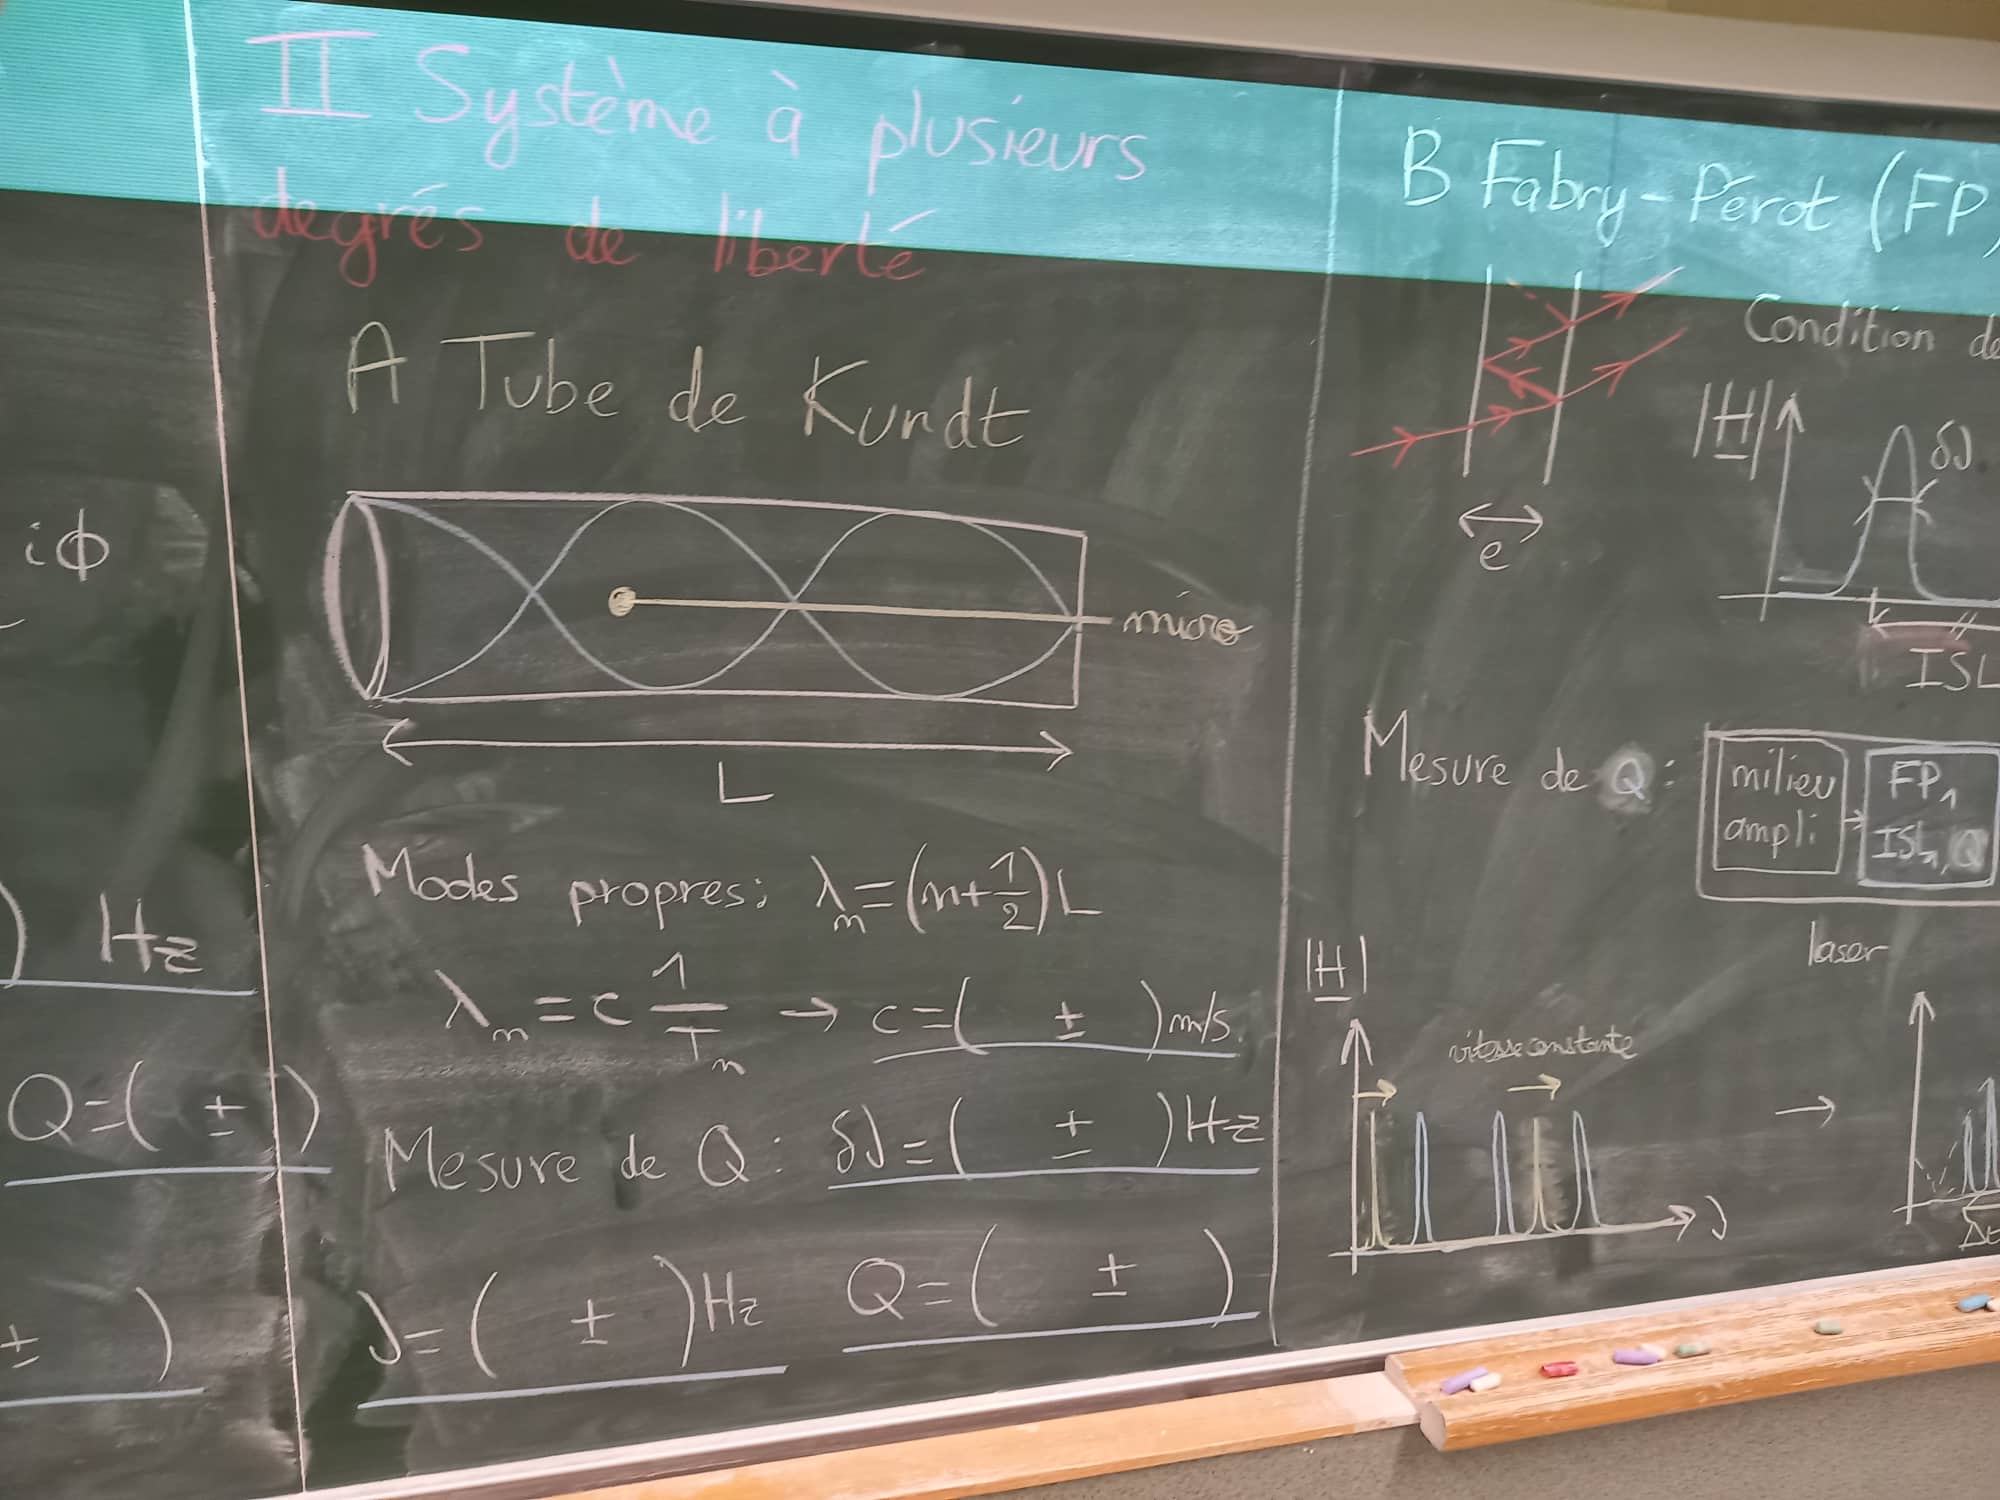 iφ
) Hz
Q=( ± )
± )
II Système à plusieurs
degrés de liberté
A Tube de Kundt
micro
L
Modes propres: λn=(n+1/2)L
λn = c 1/Tn → c=( ± )m/s.
Mesure de Q: δν=( ± )Hz
ν=( ± )Hz Q=( ± )
B Fabry-Pérot (FP)
Condition de
e
|H|
δν
ISL
Mesure de Q:
milieu
ampli
FP1
ISL1, Q
laser
|H|
vitesse constante
→
ν
Δt